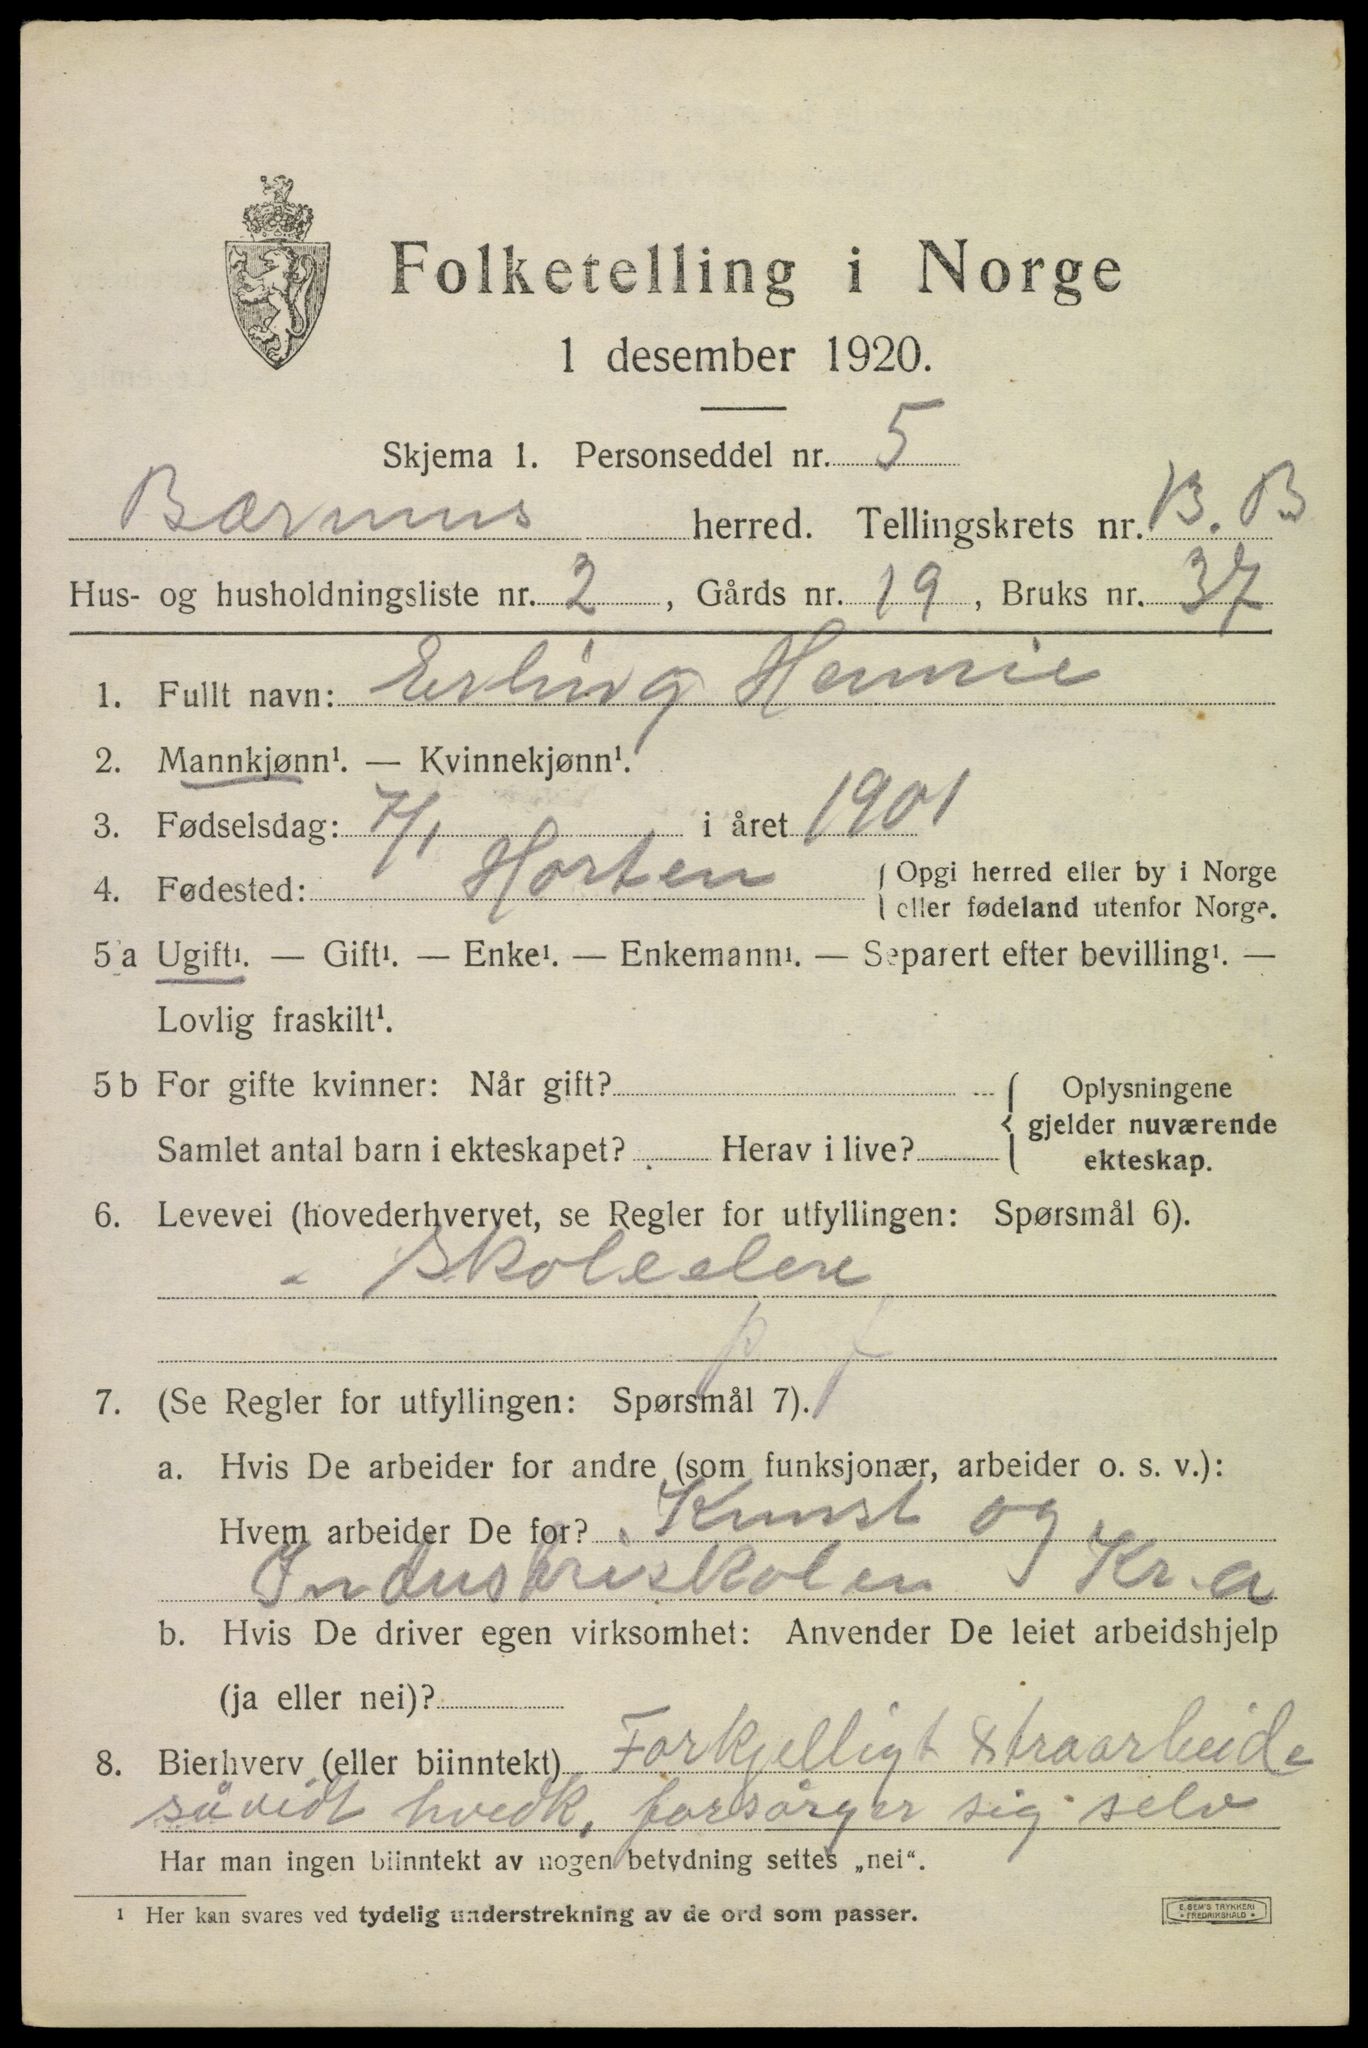 Folketelling i Norge
1 desember 1920.
Skjema 1. Personseddel nr. 5
Bærums herred. Tellingskrets nr. B. B
Hus- og husholdningsliste nr. 2, Gårds nr. 19, Bruks nr. 37
1. Fullt navn: Erling Hennie
2. Mannkjønn¹. — Kvinnekjønn¹.
3. Fødselsdag: 7/1 i året 1901
4. Fødested: Horten { Opgi herred eller by i Norge
eller fødeland utenfor Norge.
5 a Ugift¹. — Gift¹. — Enke¹. — Enkemann¹. — Separert efter bevilling¹. —
Lovlig fraskilt¹.
5 b For gifte kvinner: Når gift? { Oplysningene
gjelder nuværende
ekteskap.
Samlet antal barn i ekteskapet? Herav i live?
6. Levevei (hovederhvervet, se Regler for utfyllingen: Spørsmål 6).
Skoleelev
p f
7. (Se Regler for utfyllingen: Spørsmål 7).
a. Hvis De arbeider for andre (som funksjonær, arbeider o. s. v.):
Hvem arbeider De for? Kunst og
Industriskolen Kr.a
b. Hvis De driver egen virksomhet: Anvender De leiet arbeidshjelp
(ja eller nei)?
8. Bierhverv (eller biinntekt) Forkjelligt xtraarbeide
såvidt hvedk, forsørger sig selv
Har man ingen biinntekt av nogen betydning settes „nei".
¹ Her kan svares ved tydelig understrekning av de ord som passer.
E. SEM'S TRYKKERI
FREDRIKSHALD